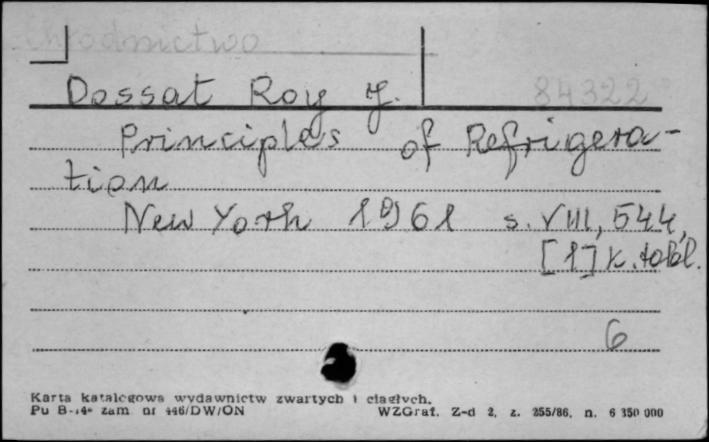 Chłodnictwo
Dossat Roy J.
84322
Principles of Refrigera-
tion
New York 1961 s. VIII, 544,
[1] k. tabl.
6
Karta katalogowa wydawnictw zwartych i ciągłych.
Pu B-14 zam. nr 446/DW/ON WZGraf. Z-d 2, z. 255/86, n. 6 350 000